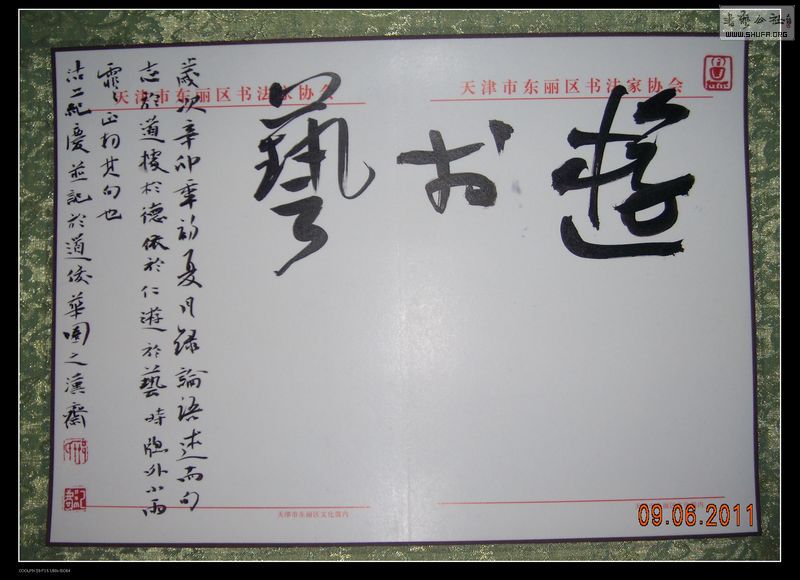 書藝公社
WWW.SHUFA.ORG
天津市东丽区书法家协会
天津市东丽区书法家协会
遊於藝
歲次辛卯年初夏月録論語述而句
志於道據於德依於仁遊於藝時窗外小雨
霏霏正打其句也
沽上紀慶並記於道俊華園之漢齋
天津市东丽区文化馆内
09.06.2011